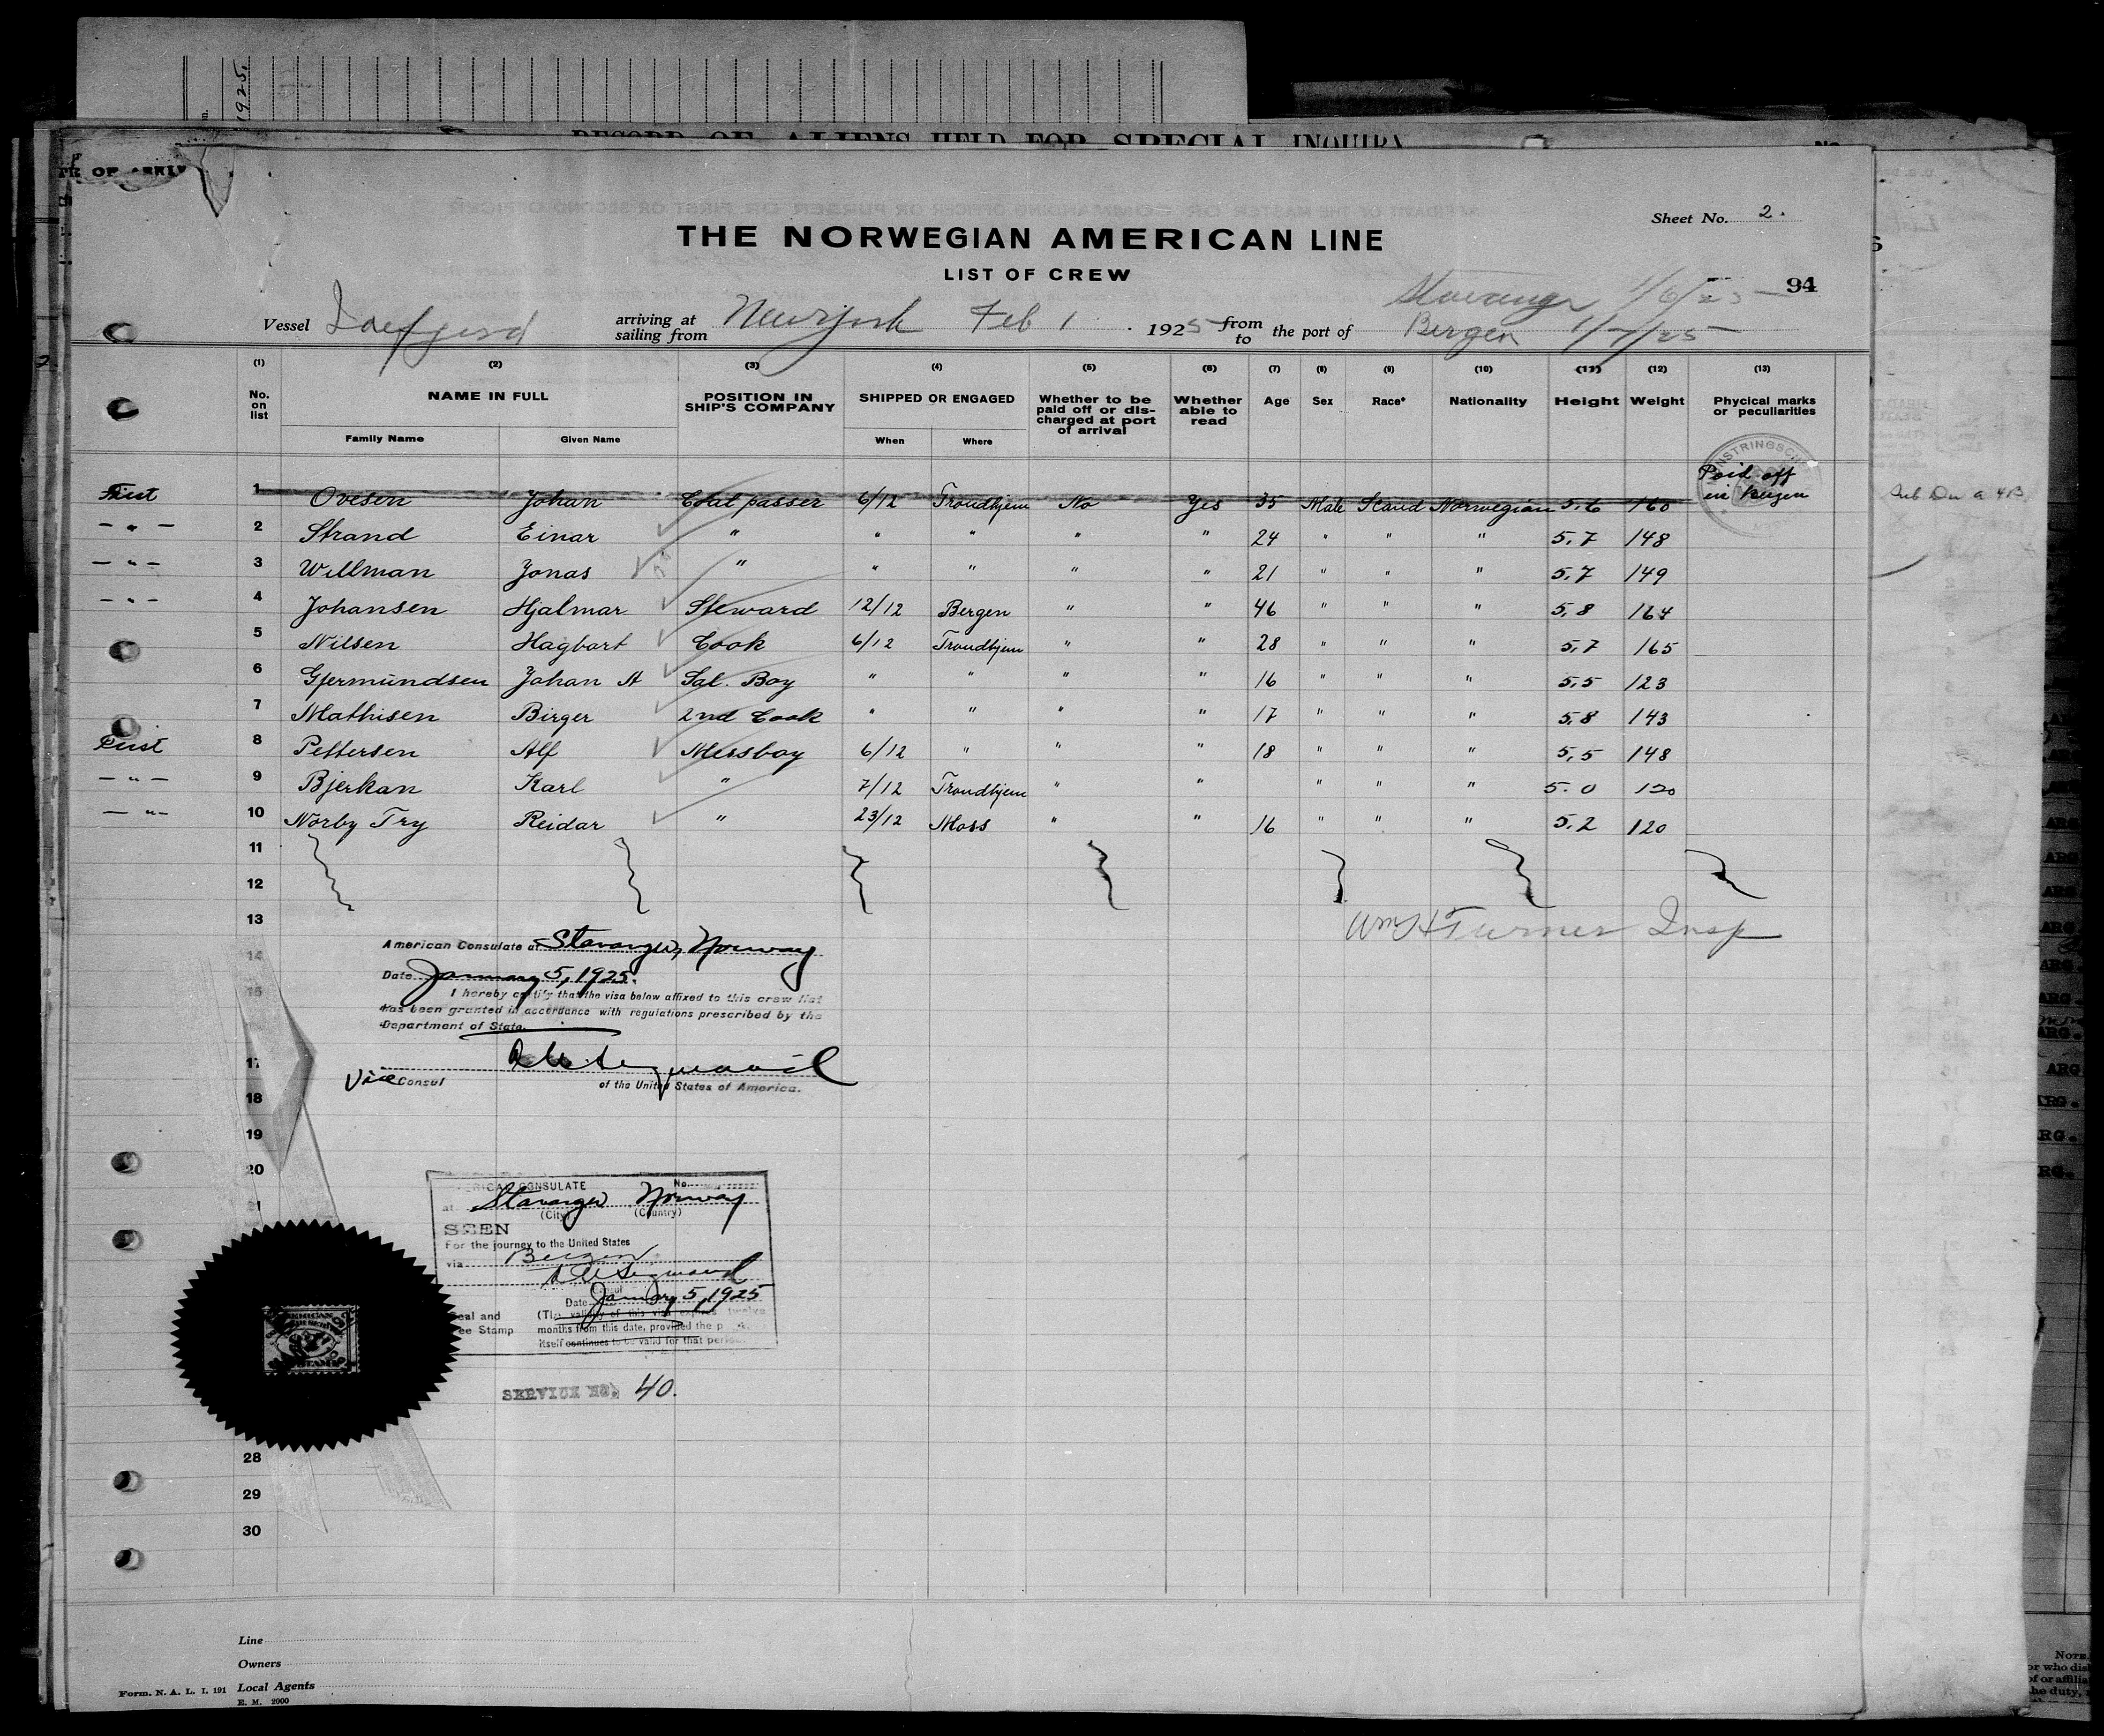 1925.
RECORD OF ALIENS HELD FOR SPECIAL INQUIRY
Sheet No. 2.
THE NORWEGIAN AMERICAN LINE
LIST OF CREW
94
Stavanger 1/6/25
Vessel arriving at New York Feb 1 1925 from the port of Bergen 1/7/25
sailing from to
(1) (2) (3) (4) (5) (6) (7) (8) (9) (10) (11) (12) (13)
No. on list NAME IN FULL POSITION IN SHIP'S COMPANY SHIPPED OR ENGAGED Whether to be paid off or discharged at port of arrival Whether able to read Age Sex Race* Nationality Height Weight Phycical marks or peculiarities
Family Name Given Name When Where
First 1 Ovesen Johan Coal passer 6/12 Trondhjem No Yes 35 Male Scand Norwegian 5.6 160 Paid off in Bergen
— " — 2 Strand Einar " " " " " 24 " " " 5.7 148
— " — 3 Willman Jonas " " " " " 21 " " " 5.7 149
— " — 4 Johansen Hjalmar Steward 12/12 Bergen " " 46 " " " 5.8 164
5 Nilsen Hagbart Cook 6/12 Trondhjem " " 28 " " " 5.7 165
6 Gjermundsen Johan A Sal. Boy " " " " 16 " " " 5.5 123
7 Mathisen Birger 2nd Cook " " " " 17 " " " 5.8 143
First 8 Pettersen Alf Messboy 6/12 " " " 18 " " " 5.5 148
— " — 9 Bjerkan Karl " 7/12 Trondhjem " " " " " 5.0 120
— " — 10 Norby Try Reidar " 23/12 Moss " " 16 " " " 5.2 120
11
12
13
Wm H Turner Insp
14
American Consulate at Stavanger, Norway
Date January 5, 1925.
15
I hereby certify that the visa below affixed to this crew list
has been granted in accordance with regulations prescribed by the
Department of State.
17
Vice Consul of the United States of America.
18
19
20
21
AMERICAN CONSULATE No.
at Stavanger Norway
(City) (Country)
SEEN
For the journey to the United States
via Bergen
Consul
Date January 5, 1925
Seal and Fee Stamp
(The validity of this visa expires twelve
months from this date, provided the
itself continues to be valid for that period.
SERVICE NO. 40.
28
29
30
Line
Owners
Local Agents
Form. N. A. L. I. 191
E. M. 2000